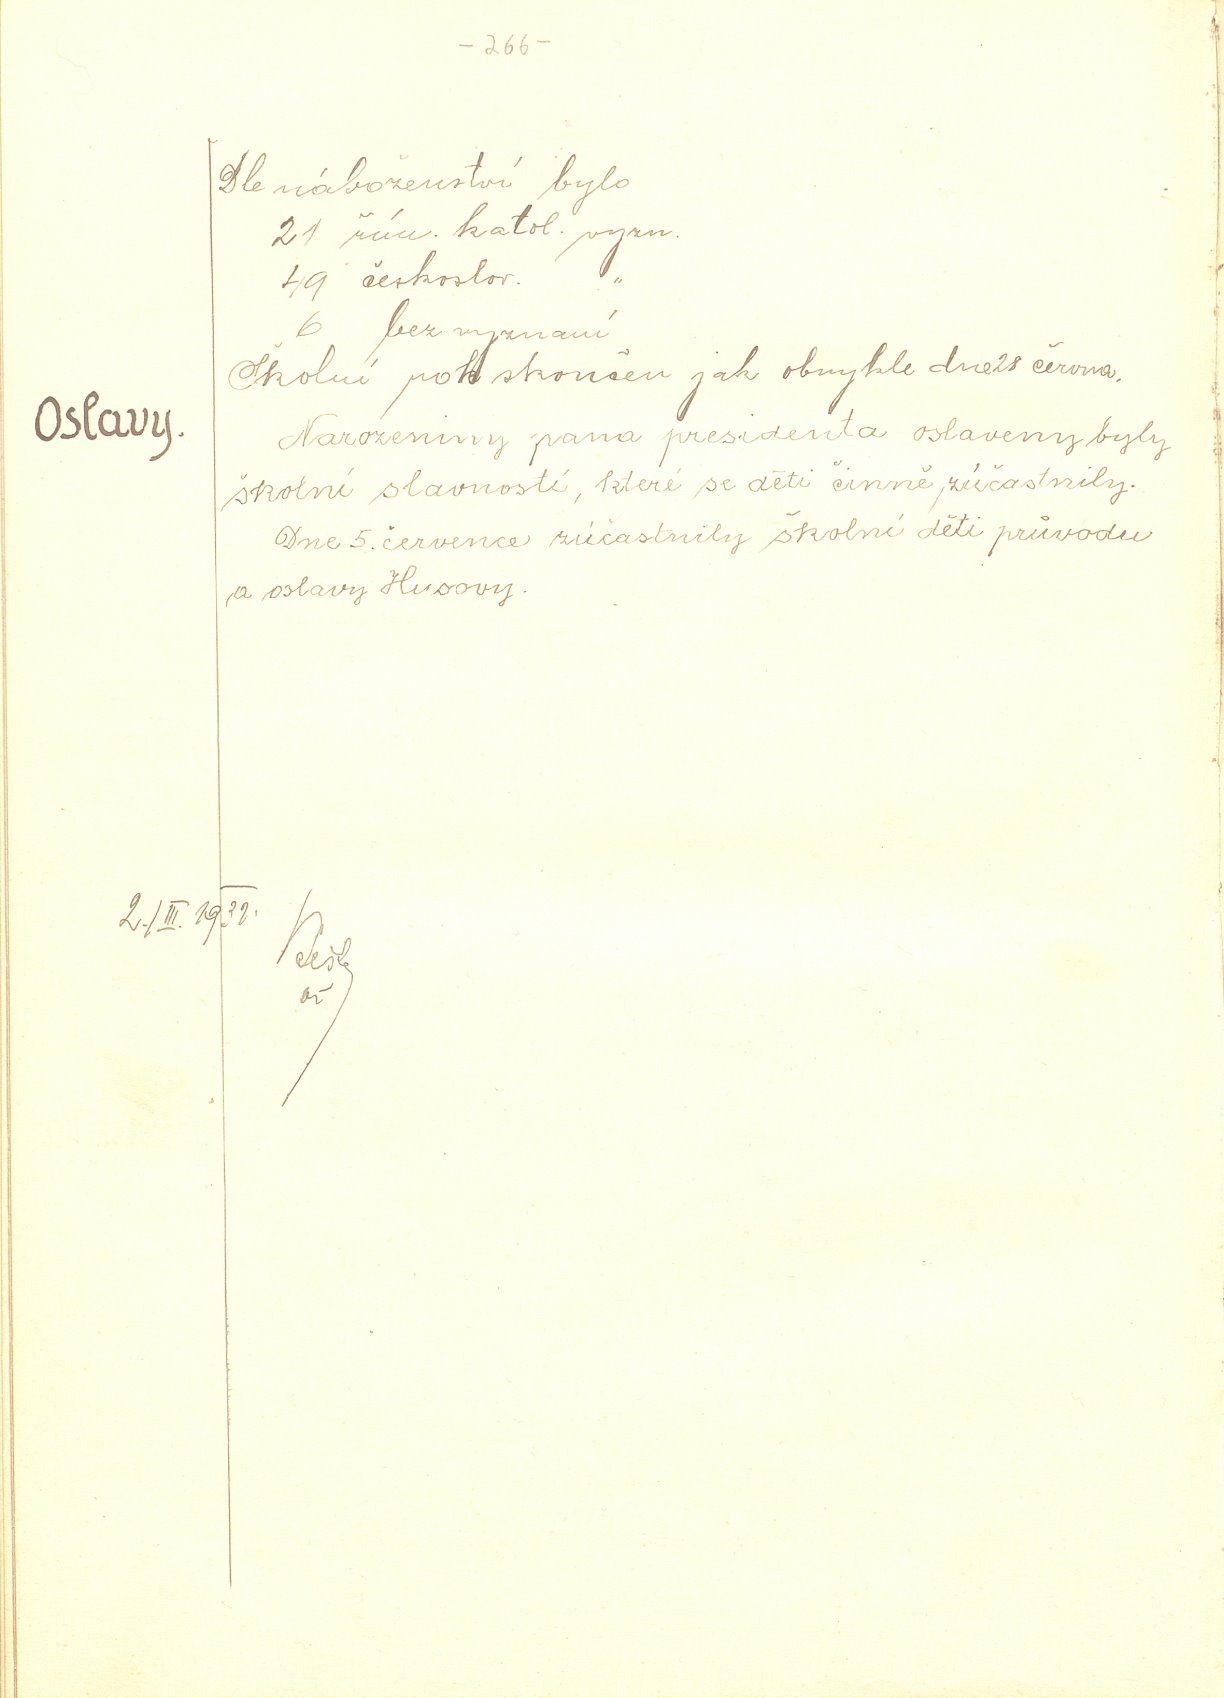 - 266 -
Dle náboženství bylo
21 řím. katol. vyzn.
49 českoslov. "
6 bez vyznání
Školní rok skončen jak obvykle dne 28 června.
Oslavy.
Narozeniny pana presidenta oslaveny byly
školní slavností, které se děti činně zúčastnily.
Dne 5. července zúčastnily školní děti průvodu
a oslavy Husovy.
2./III. 1932.